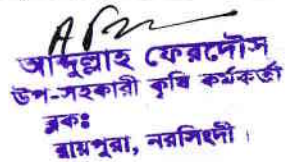 আব্দুল্লাহ ফেরদৌস
উপ-সহকারী কৃষি কর্মকর্তা
ব্লকঃ
রায়পুরা, নরসিংদী।